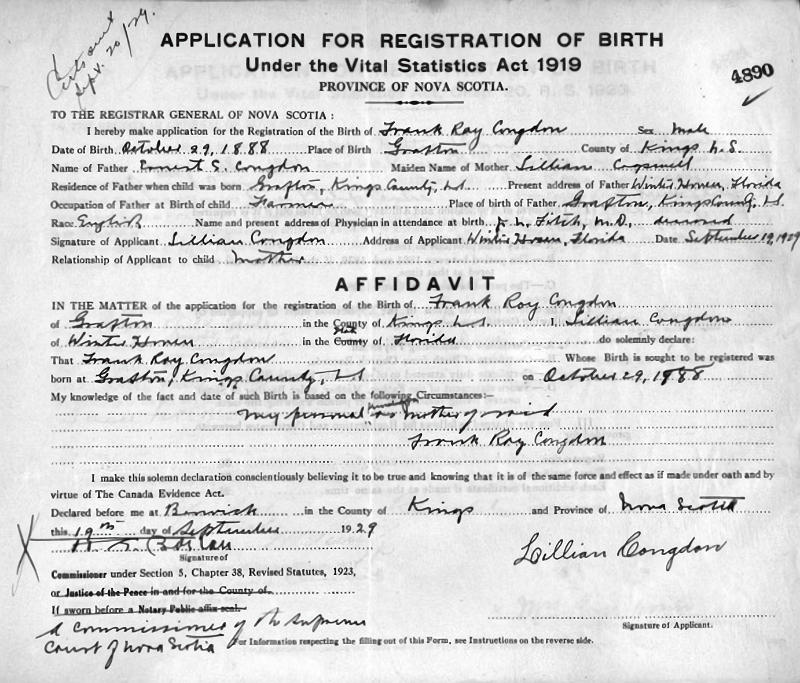 Sept. 20/29.
APPLICATION FOR REGISTRATION OF BIRTH
Under the Vital Statistics Act 1919
PROVINCE OF NOVA SCOTIA.
4890
TO THE REGISTRAR GENERAL OF NOVA SCOTIA :
I hereby make application for the Registration of the Birth of Frank Roy Congdon Sex Male
Date of Birth October 29, 1888 Place of Birth Grafton County of Kings N.S.
Name of Father Ernest S. Congdon Maiden Name of Mother Lillian Cogswell
Residence of Father when child was born Grafton, Kings County, N.S. Present address of Father Winter Haven, Florida
Occupation of Father at Birth of child Farmer Place of birth of Father Grafton, Kings County, N.S.
Race English Name and present address of Physician in attendance at birth Fitch, M.D., deceased
Signature of Applicant Lillian Congdon Address of Applicant Winter Haven, Florida Date September 19, 1929
Relationship of Applicant to child Mother
AFFIDAVIT
IN THE MATTER of the application for the registration of the Birth of Frank Roy Congdon
of Grafton in the County of Kings N.S. I, Lillian Congdon
of Winter Haven in the County of State Florida do solemnly declare:
That Frank Roy Congdon Whose Birth is sought to be registered was
born at Grafton, Kings County, N.S. on October 29, 1988
My knowledge of the fact and date of such Birth is based on the following Circumstances:—
My personal knowledge as mother of said
Frank Roy Congdon
I make this solemn declaration conscientiously believing it to be true and knowing that it is of the same force and effect as if made under oath and by
virtue of The Canada Evidence Act.
Declared before me at Berwick in the County of Kings and Province of Nova Scotia
this 19th day of September 1929
Lillian Congdon
Signature of
Commissioner under Section 5, Chapter 38, Revised Statutes, 1923,
or Justice of the Peace in and for the County of
If sworn before a Notary Public affix seal.
A Commissioner of the Supreme
Court of Nova Scotia
Signature of Applicant.
For Information respecting the filling out of this Form, see Instructions on the reverse side.